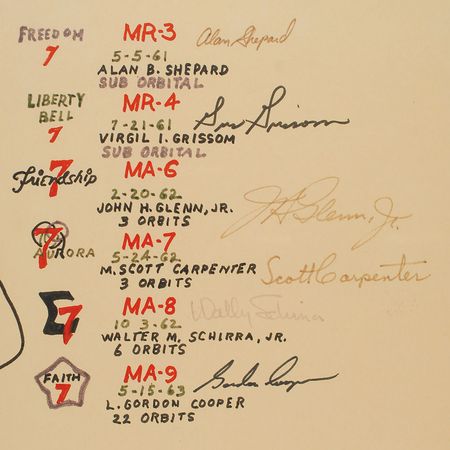 FREEDOM 7 MR-3 Alan Shepard
5-5-61
ALAN B. SHEPARD
SUB ORBITAL
LIBERTY BELL 7 MR-4 Gus Grissom
7-21-61
VIRGIL I. GRISSOM
SUB ORBITAL
Friendship 7 MA-6
2-20-62
JOHN H. GLENN, JR. JHGlenn, Jr.
3 ORBITS
AURORA 7 MA-7
5-24-62
M. SCOTT CARPENTER Scott Carpenter
3 ORBITS
Σ7 MA-8 Wally Schirra
10 3-62
WALTER M. SCHIRRA, JR.
6 ORBITS
FAITH 7 MA-9 Gordon Cooper
5-15-63
L. GORDON COOPER
22 ORBITS